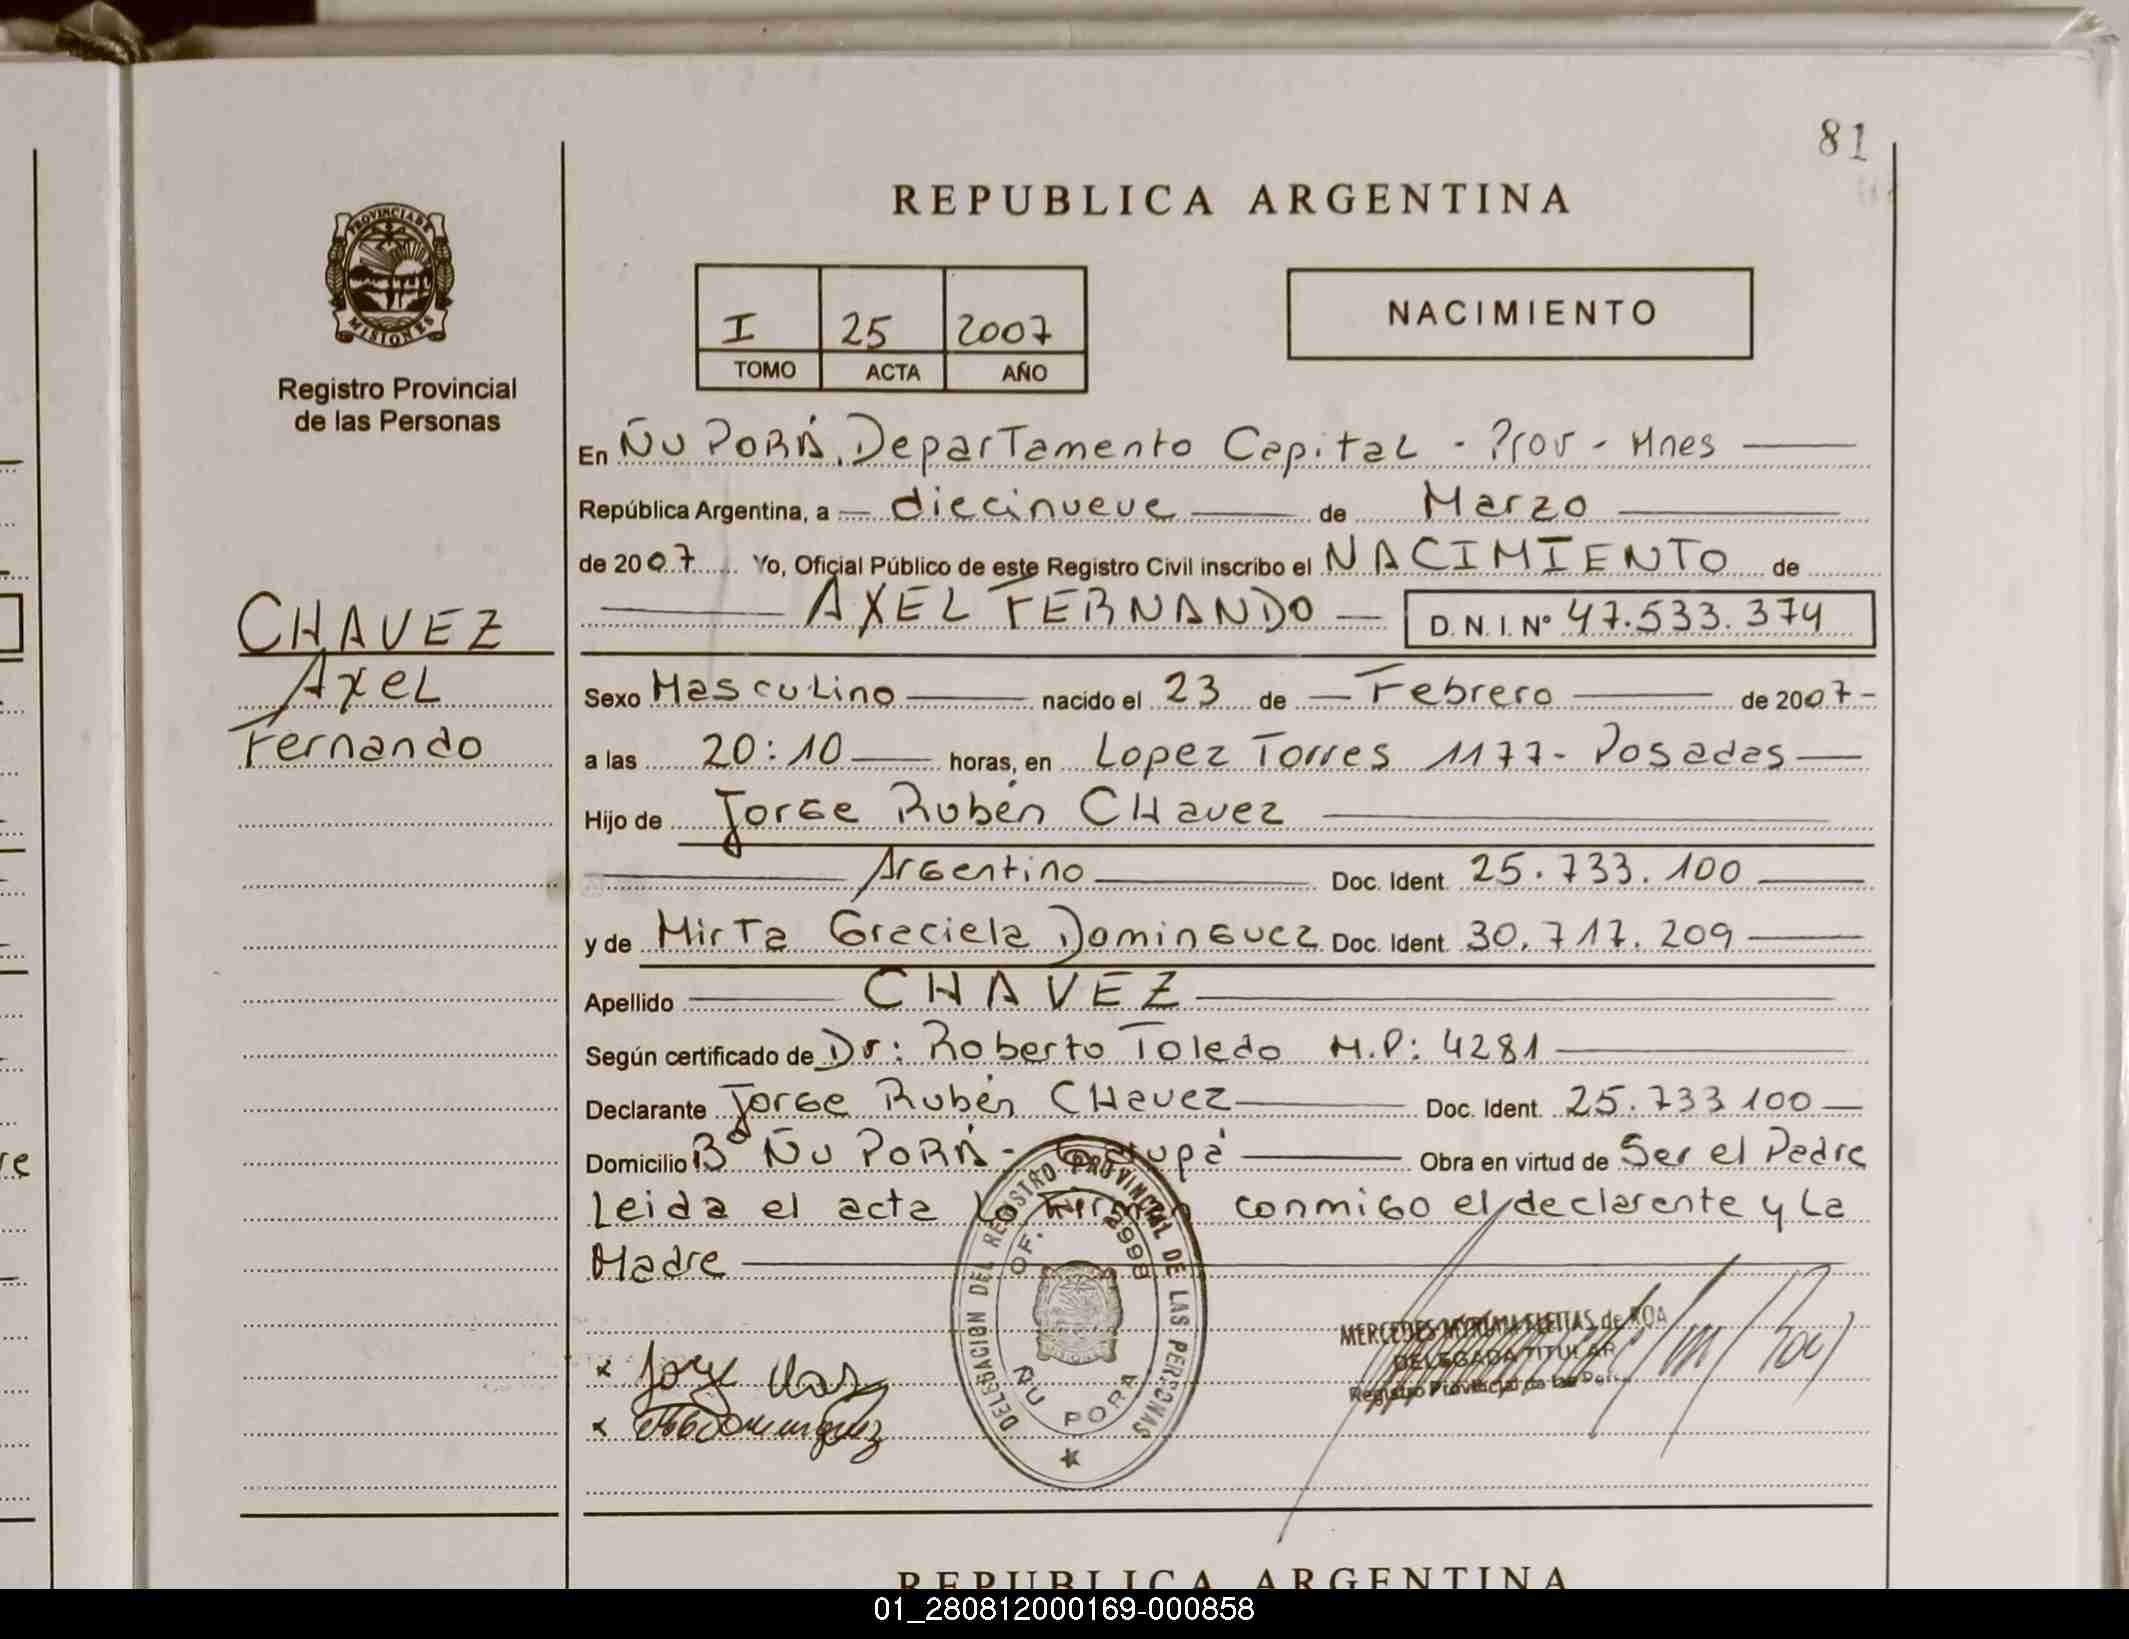 81
REPUBLICA ARGENTINA
PROVINCIA DE MISIONES
Registro Provincial
de las Personas
I 25 2007
TOMO ACTA AÑO
NACIMIENTO
En ÑU PORÁ, Departamento Capital - Prov - Mnes
República Argentina, a diecinueve de Marzo
de 2007 Yo, Oficial Público de este Registro Civil inscribo el NACIMIENTO de
AXEL FERNANDO D.N.I. Nº 47.533.374
CHAVEZ
Axel
Fernando
Sexo Masculino nacido el 23 de Febrero de 2007-
a las 20:10 horas, en Lopez Torres 1177- Posadas
Hijo de Jorge Rubén Chavez
Argentino Doc. Ident. 25.733.100
y de Mirta Graciela Dominguez Doc. Ident. 30.717.209
Apellido CHAVEZ
Según certificado de Dr: Roberto Toledo M.P: 4281
Declarante Jorge Rubén Chavez Doc. Ident. 25.733 100
Domicilio Bº ÑU PORÁ - Obra en virtud de Ser el Padre
Leida el acta la Firman conmigo el declarante y La
Madre
DELEGACION DEL REGISTRO PROVINCIAL DE LAS PERSONAS
OF. 2998
ÑU PORA
MERCEDES MYRIAM FLEITAS de ROA
DELEGADA TITULAR
Registro Provincial de las
x Jorge
x Dominguez
REPUBLICA ARGENTINA
01_280812000169-000858